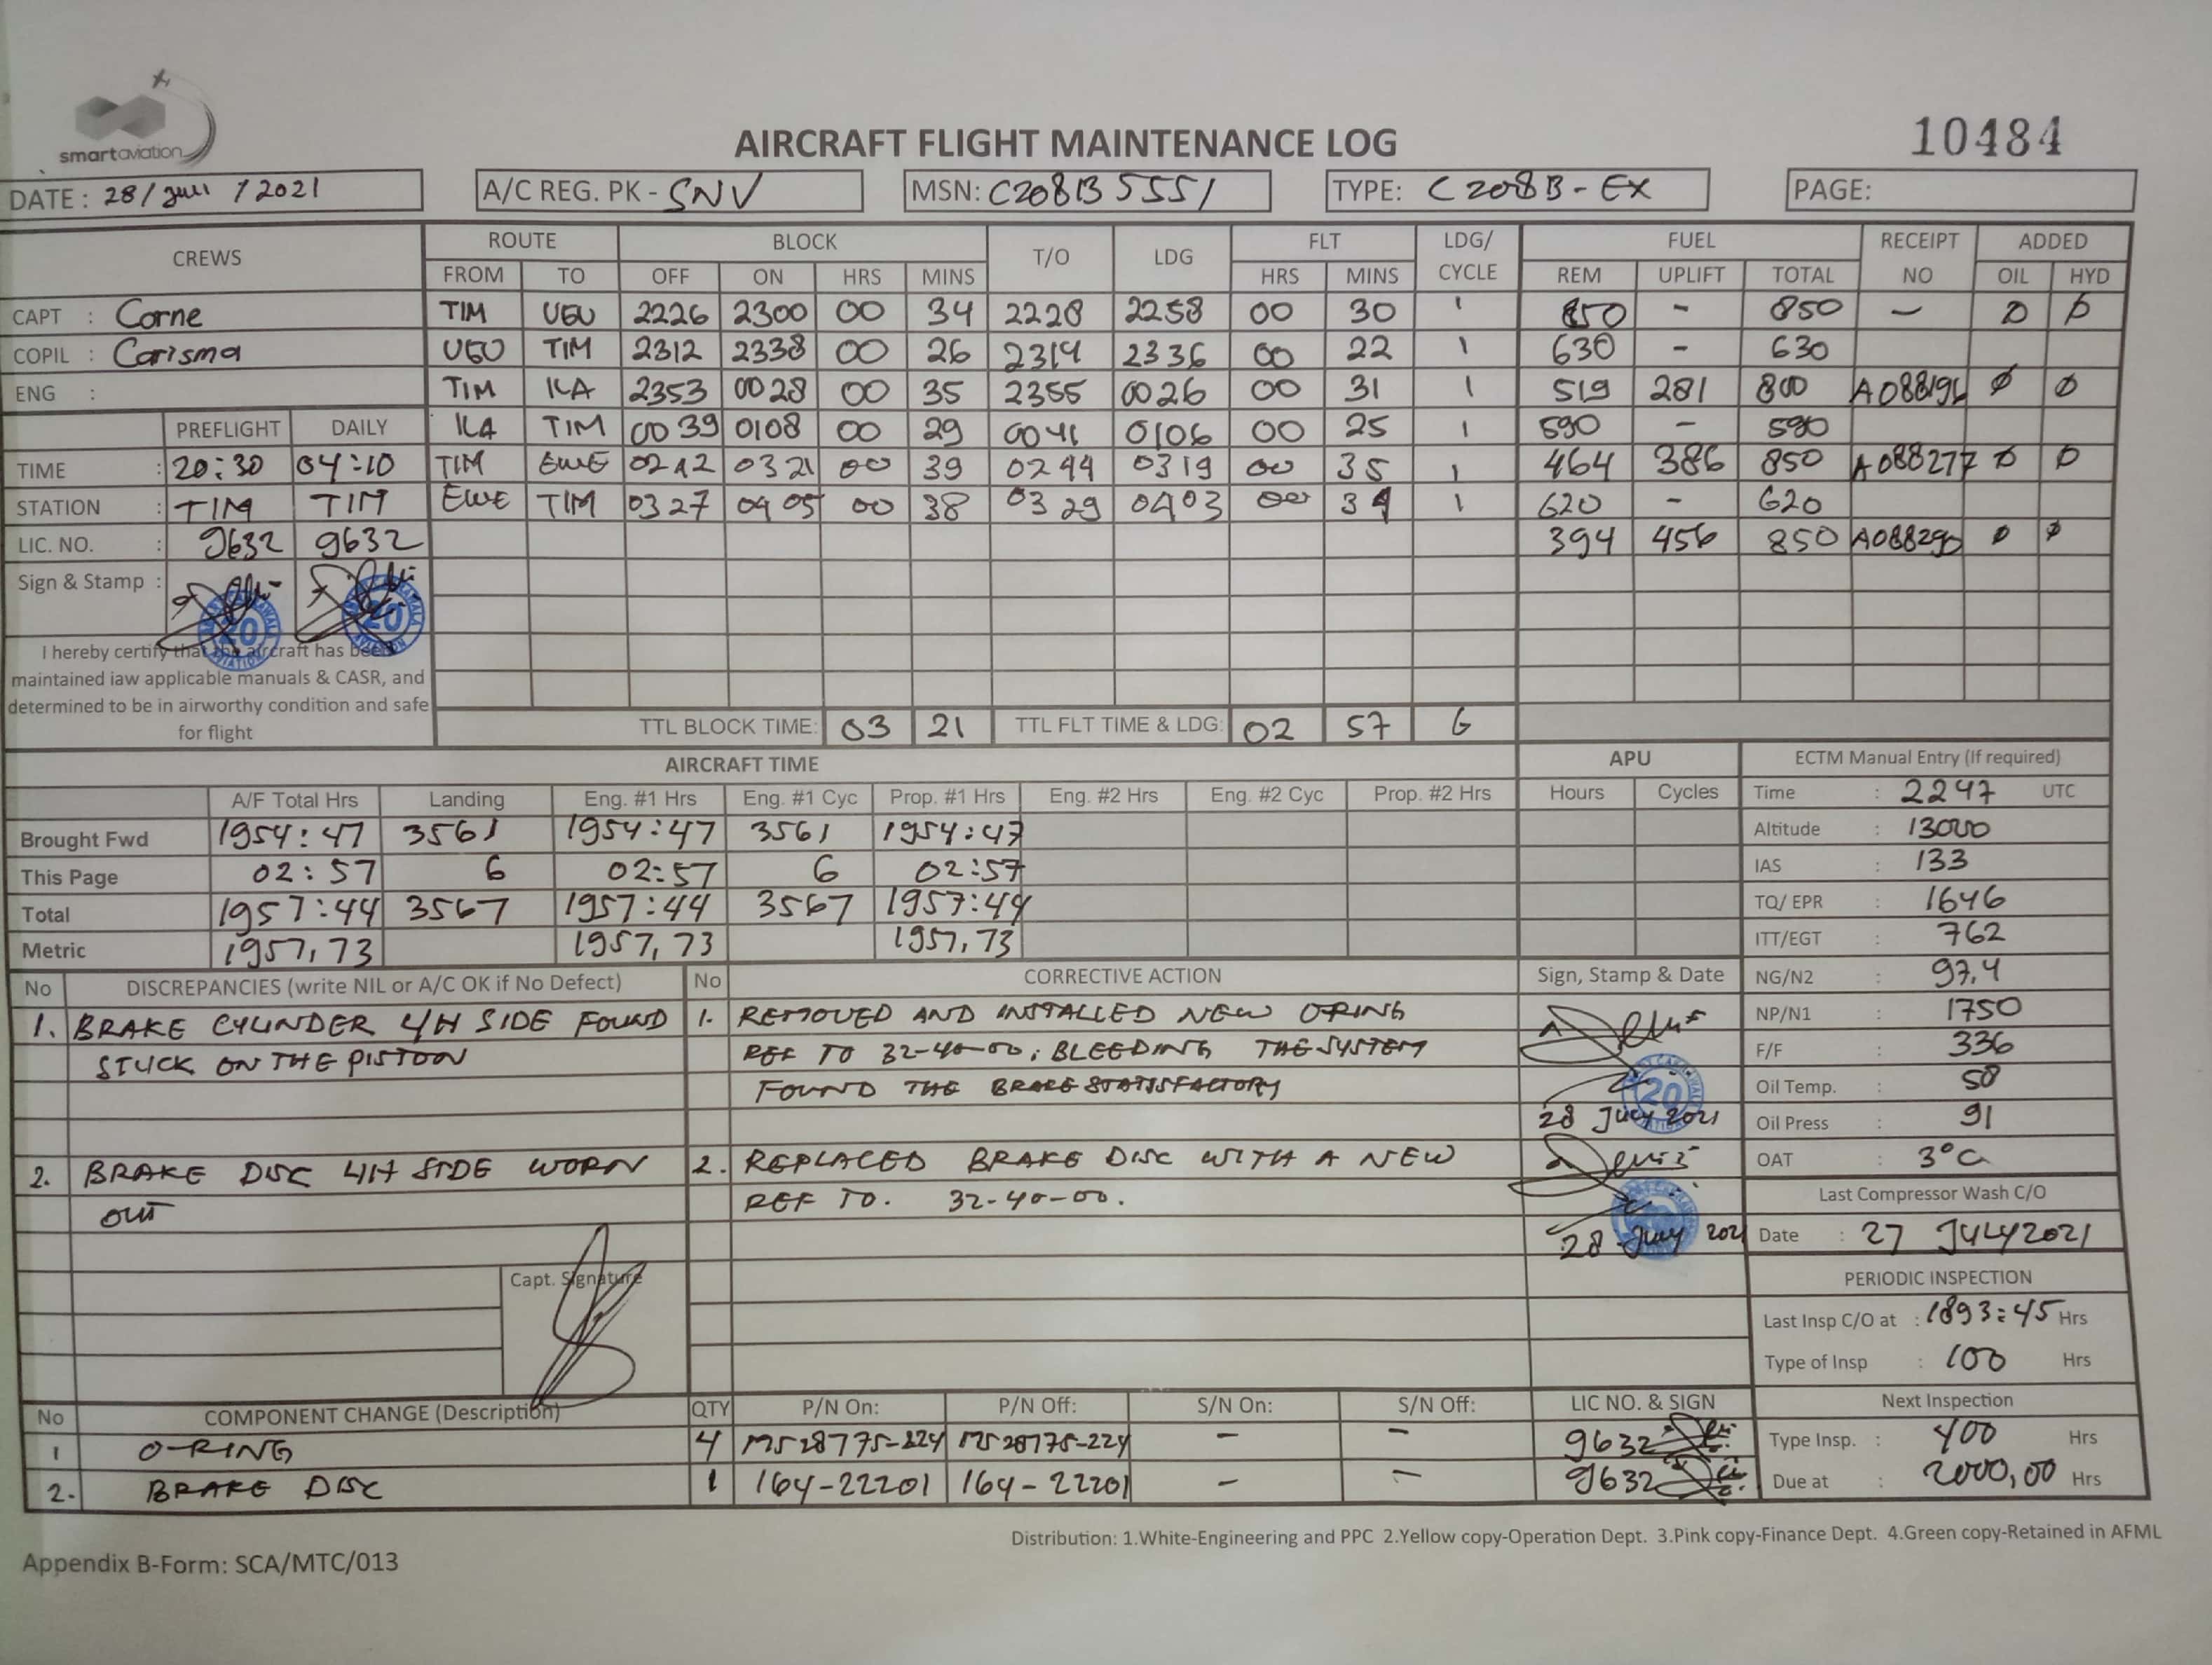 smartaviation
AIRCRAFT FLIGHT MAINTENANCE LOG
10484
DATE : 28 / Juli / 2021
A/C REG. PK - SNV
MSN: C208B 5551
TYPE: C208B - EX
PAGE:
CREWS ROUTE BLOCK T/O LDG FLT LDG/ CYCLE FUEL RECEIPT NO ADDED
FROM TO OFF ON HRS MINS HRS MINS REM UPLIFT TOTAL OIL HYD
CAPT : Corne TIM UGU 2226 2300 00 34 2228 2258 00 30 1 850 - 850 - 0 0
COPIL : Carisma UGU TIM 2312 2338 00 26 2314 2336 00 22 1 630 - 630
ENG : TIM ILA 2353 0028 00 35 2355 0026 00 31 1 519 281 800 Ø Ø
PREFLIGHT DAILY ILA TIM 0039 0108 00 29 0041 0106 00 25 1 590 - 590
TIME : 20:30 04:10 TIM EWE 0242 0321 00 39 0244 0319 00 35 1 464 386 850 A088277 Ø Ø
STATION : TIM TIM EWE TIM 0327 0405 00 38 0329 0403 00 34 1 620 - 620
LIC. NO. : 9632 9632 394 456 850 Ø Ø
Sign & Stamp :
20 20
I hereby certify that the aircraft has been
maintained iaw applicable manuals & CASR, and
determined to be in airworthy condition and safe
for flight
TTL BLOCK TIME: 03 21 TTL FLT TIME & LDG: 02 57 6
AIRCRAFT TIME APU
A/F Total Hrs Landing Eng. #1 Hrs Eng. #1 Cyc Prop. #1 Hrs Eng. #2 Hrs Eng. #2 Cyc Prop. #2 Hrs Hours Cycles
Brought Fwd 1954:47 3561 1954:47 3561 1954:47
This Page 02:57 6 02:57 6 02:57
Total 1957:44 3567 1957:44 3567 1957:44
Metric 1957,73 1957,73 1957,73
ECTM Manual Entry (If required)
Time : 2247 UTC
Altitude : 13000
IAS : 133
TQ/ EPR : 1646
ITT/EGT : 762
NG/N2 : 97,4
NP/N1 : 1750
F/F : 336
Oil Temp. : 58
Oil Press : 91
OAT : 3°C
Last Compressor Wash C/O
Date : 27 JULY 2021
PERIODIC INSPECTION
Last Insp C/O at : 1893:45 Hrs
Type of Insp : 100 Hrs
Next Inspection
Type Insp. : 400 Hrs
Due at : 2000,00 Hrs
No DISCREPANCIES (write NIL or A/C OK if No Defect) No CORRECTIVE ACTION Sign, Stamp & Date
1. BRAKE CYLINDER L/H SIDE FOUND 1. REMOVED AND INSTALLED NEW O-RING
STUCK ON THE PISTON REF TO 32-40-00, BLEEDING THE SYSTEM
FOUND THE BRAKE STATISFACTORY
20
28 July 2021
2. BRAKE DISC L/H SIDE WORN 2. REPLACED BRAKE DISC WITH A NEW
OUT REF TO. 32-40-00.
28 July 2021
Capt. Signature
No COMPONENT CHANGE (Description) QTY P/N On: P/N Off: S/N On: S/N Off: LIC NO. & SIGN
1 O-RING 4 MS28775-224 MS28775-224 - - 9632
2. BRAKE DISC 1 164-22201 164-22201 - - 9632
Distribution: 1.White-Engineering and PPC 2.Yellow copy-Operation Dept. 3.Pink copy-Finance Dept. 4.Green copy-Retained in AFML
Appendix B-Form: SCA/MTC/013